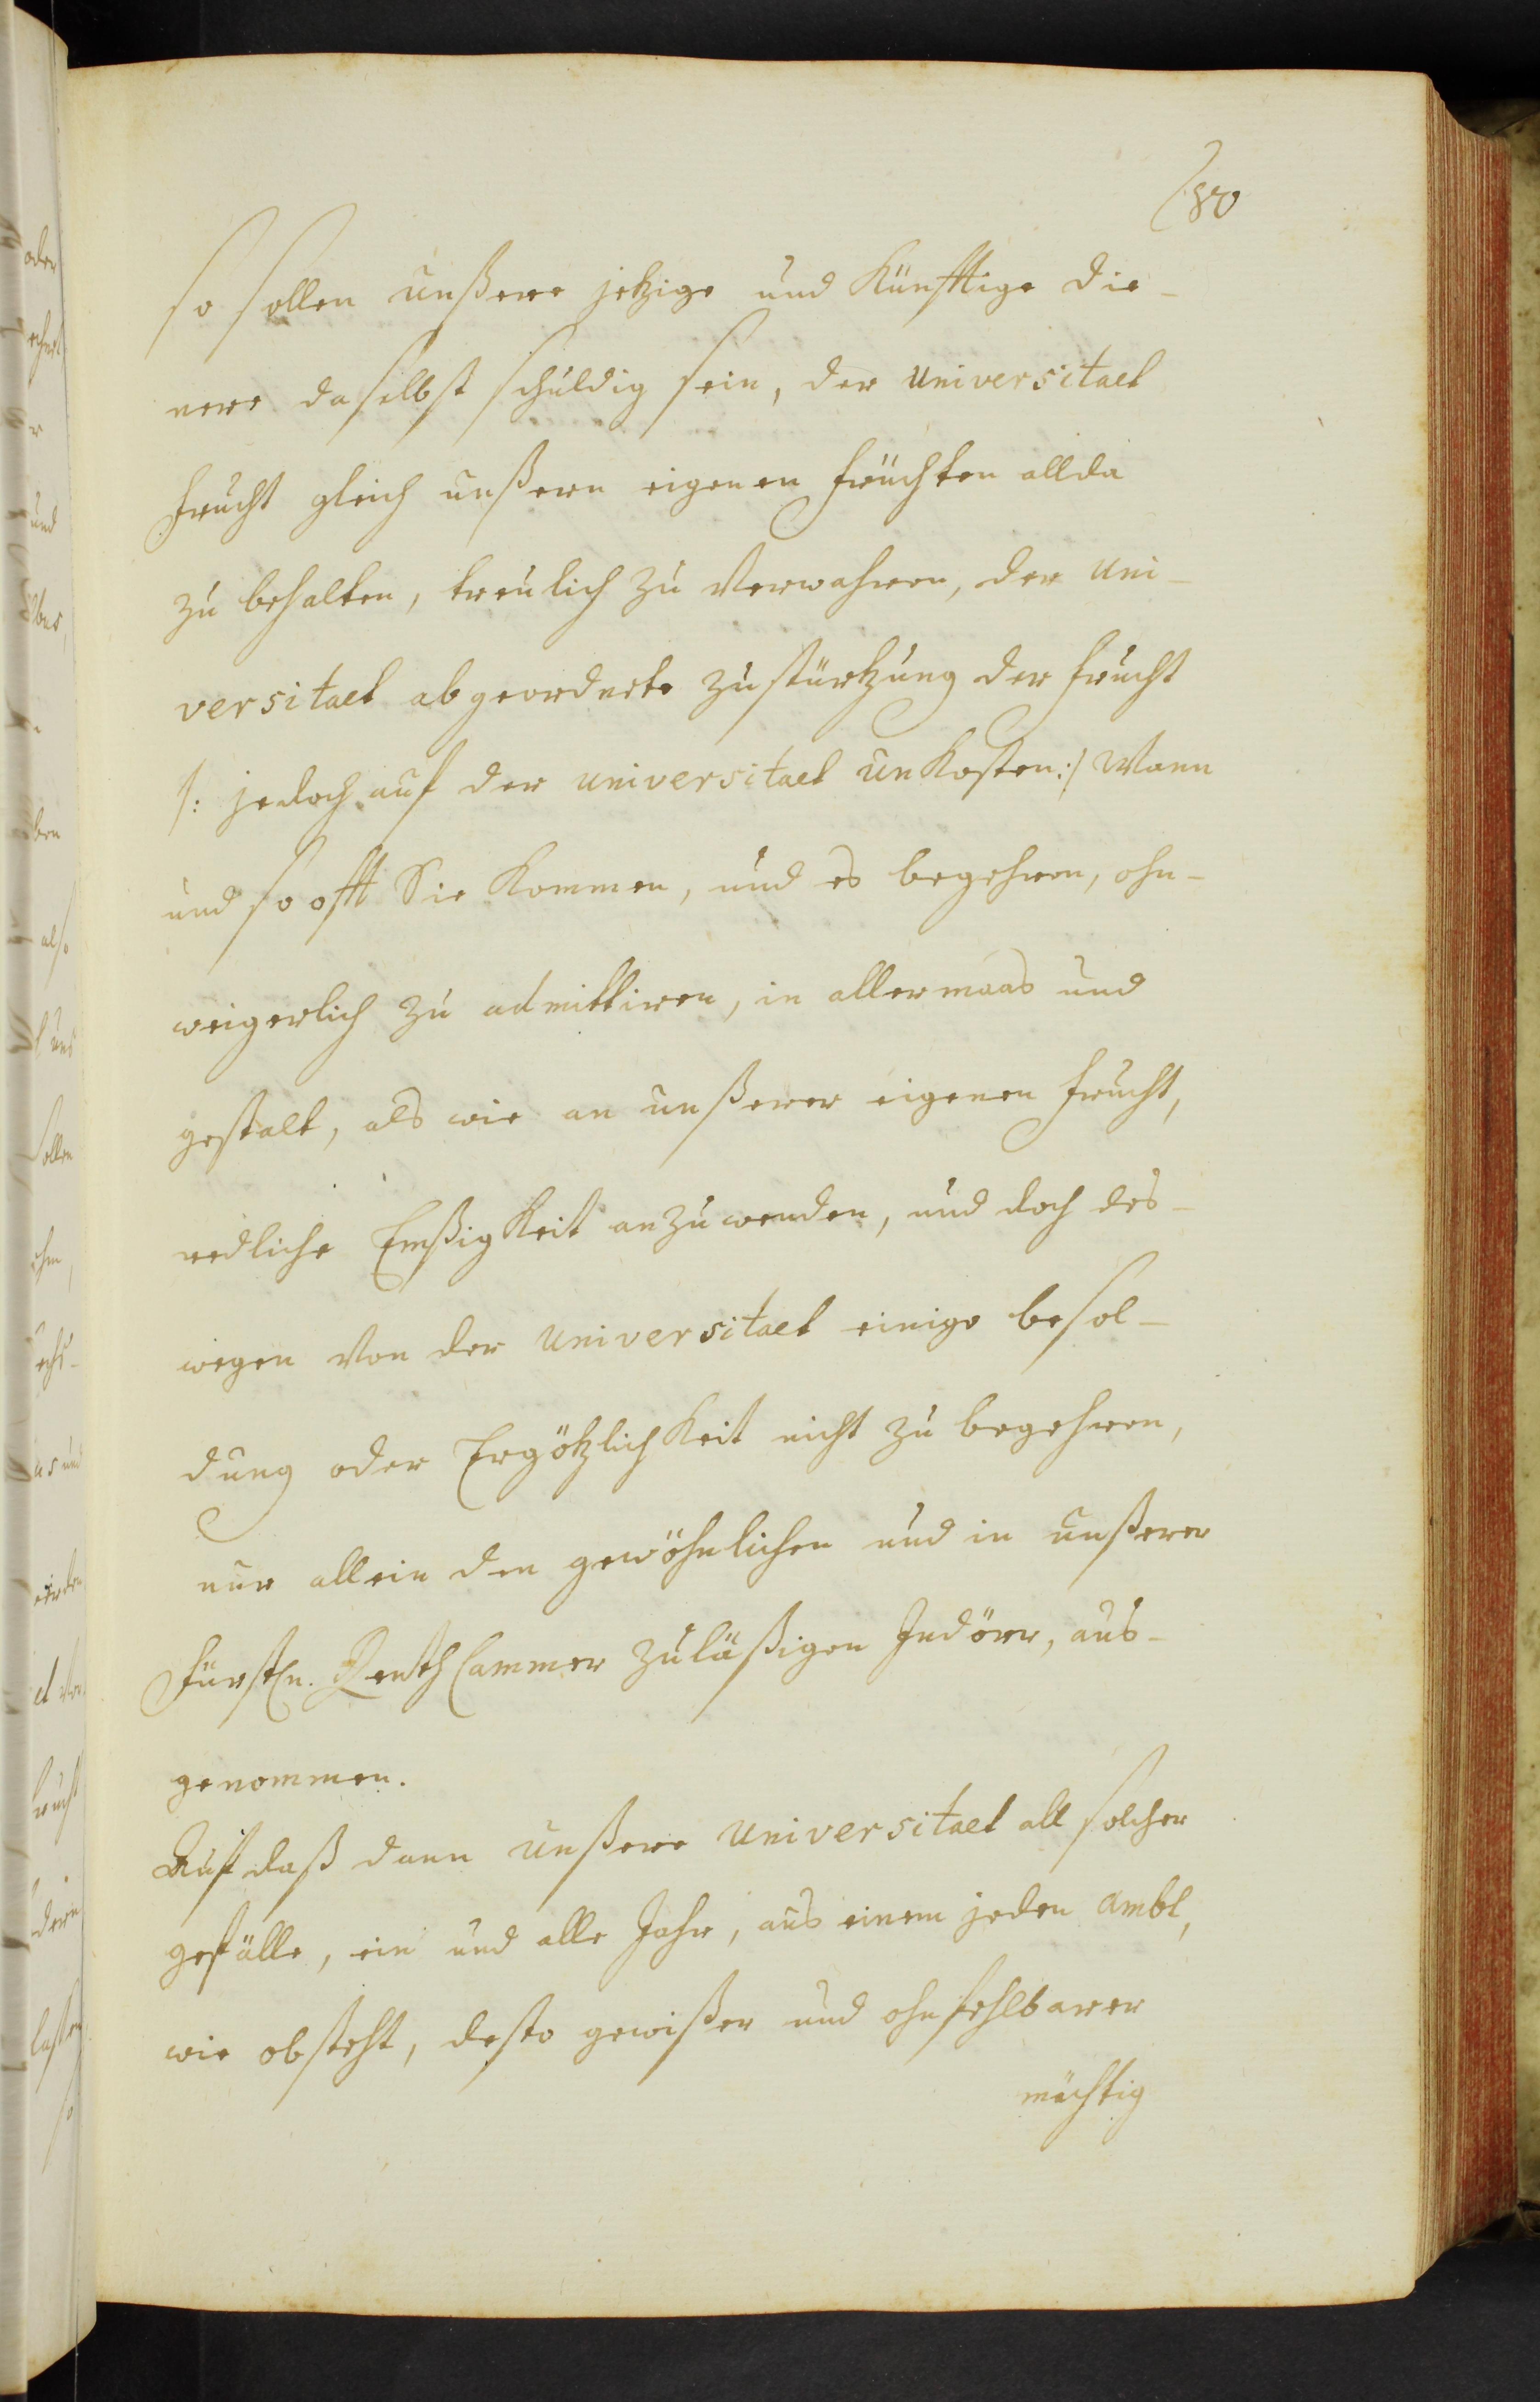 80
so sollen unßere jetzige und Künfftige Die-
nere daselbst schuldig sein, der Universitaet
frucht gleich unßern eigenen früchten allda
zu behalten, treulich zu Verwahren, der Uni-
versitaet abgeordnete zu stürtzung der frucht
/: jedoch auf der Universitaet unKosten :/ Wann
und so offt Sie Kommen, und es begehren, ohn-
weigerlich zu admittiren, in allermaas und
gestalt, als wie an unßerer eigenen frucht,
redliche EmßigKeit anzuwenden, und doch des-
wegen Von der Universitaet einige besol-
dung oder ErgötzlichKeit nicht zu begehren,
nur allein den gewöhnlichen und in unßerer
fürstln. RenthCammer zuläßigen Indörr, aus-
genommen.
Auf daß dann unßere Universitaet all solcher
gefälle, ein und alle Jahr, aus einem jeden Ambt,
wie obsteht, desto gewißer und ohnfehlbarer
mächtig